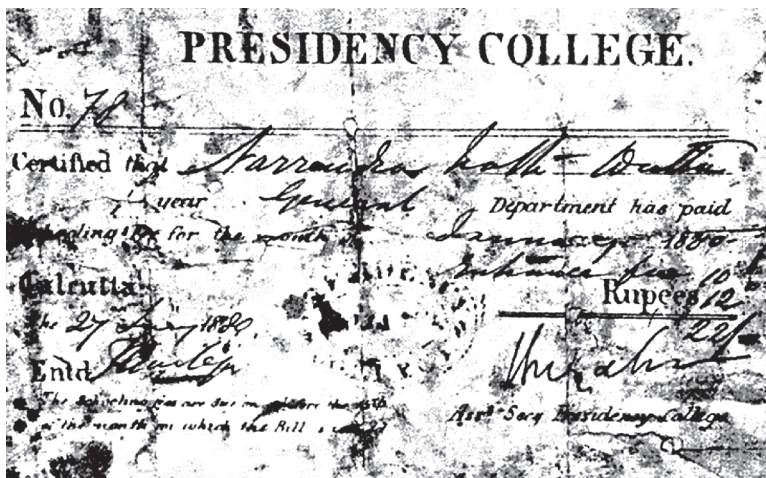 PRESIDENCY COLLEGE.
No. 78
Certified that Narrendra Nath Dutta
year General Department has paid
Schooling fee for the month of January 1880
Entrance fee 10
Calcutta
Rupees 12
The 27 Jany 1880
22/
Entd
The Schooling fees are due on or before the 15th
of the month on which the Bill is
Asst. Secy Presidency College